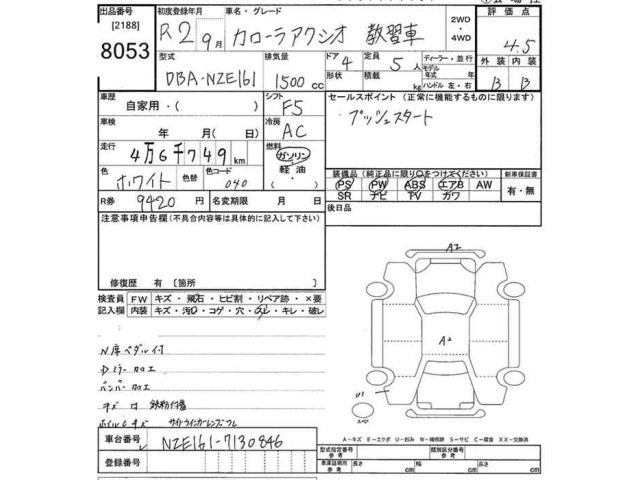 出品番号 初度登録年月 車名・グレード 2WD ・ 4WD 評価点
[2188] R2 9月 カローラアクシオ 教習車 4.5
8053 型式 排気量 ドア 4 定員 5人 ディーラー・並行 外装 内装
DBA-NZE161 1500cc 形状 積載 kg モデル年式 年 ハンドル 左・右 B B
車歴 自家用・( ) シフト F5 セールスポイント(正常に機能するものに限ります)
車検 年 月( 日) 冷房 AC プッシュスタート
走行 4万6千749km 燃料 ガソリン・軽油・
色 ホワイト 色替 色コード 040 装備品(純正品に限り○をつけてください) 新車保証書
PS PW ABS エアB AW 有・無
SR ナビ TV カワ
R券 9420円 名変期限 月 日 後日品
注意事項申告欄(不具合内容等は具体的に記入して下さい)
修復歴 有[箇所
検査員記入欄 FW キズ・飛石・ヒビ割・リペア跡・×要
内装 キズ・汚・コゲ・穴・スレ・キレ・破レ
A2
A2
U1
N席ペダル付
Dミラー加工
バンパー加工
キズ 鉄粉付着
ホイルキズ サイドウインカーレンズワレ
A-キズ E-エクボ U-凹み W-補修跡 S-サビ C-腐食 XX-交換済
車台番号 NZE161-7130846
型式指定番号 類別区分番号
登録番号 車庫証明用参考 長さ cm 幅 cm 高さ cm